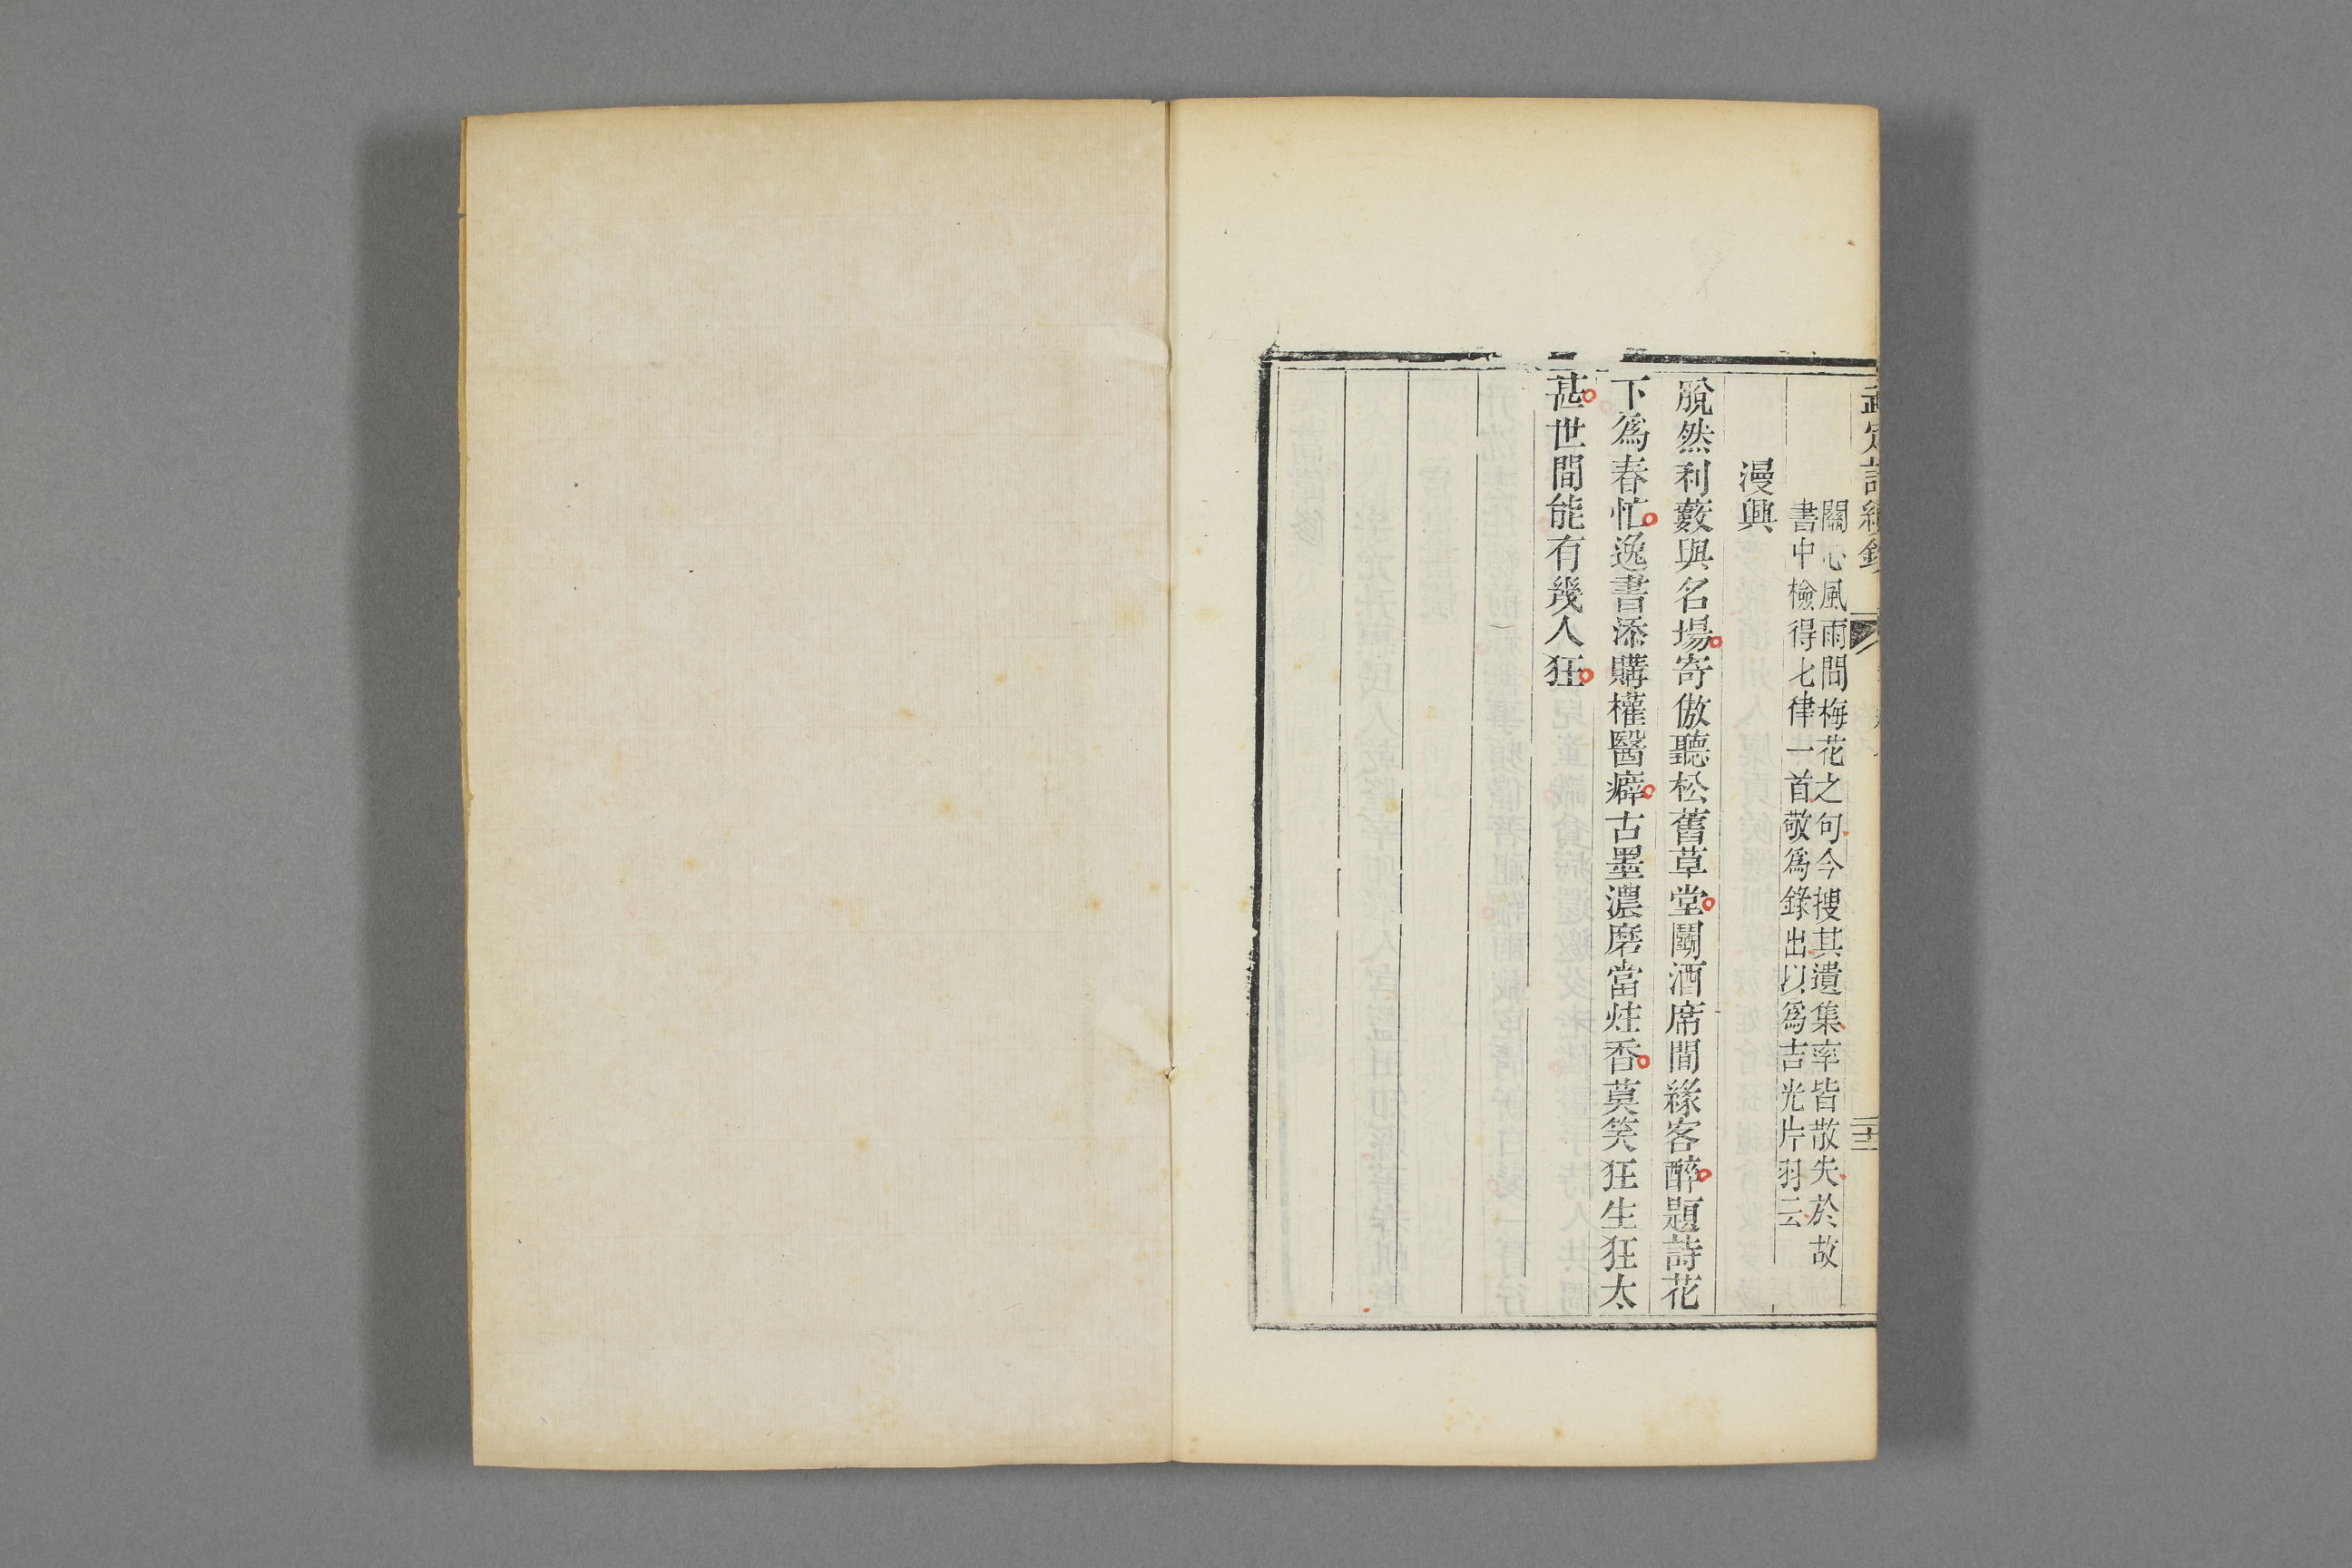 武定詩續鈔
二十一
關心風雨問梅花之句今搜其遺集率皆散失於故
書中檢得七律一首敬爲錄出以爲吉光片羽云
漫興
脫然利藪與名場寄傲聽松舊草堂鬭酒席間緣客醉題詩花
下爲春忙逸書添購權醫癖古墨濃磨當炷香莫笑狂生狂太
甚世間能有幾人狂